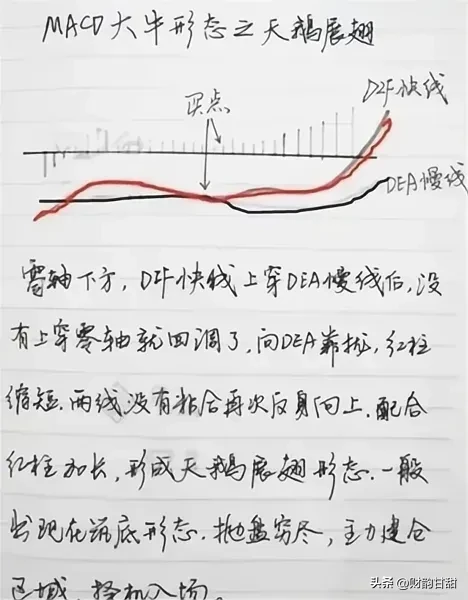 MACD大牛形态之天鹅展翅
买点
DIF快线
DEA慢线
零轴下方，DIF快线上穿DEA慢线后，没
有上穿零轴就回调了，向DEA靠拢，红柱
缩短．两线没有粘合再次反身向上．配合
红柱加长，形成天鹅展翅形态．一般
出现在筑底形态．抛盘穷尽，主力建仓
区域，择机入场。
头条 @财韵甘甜